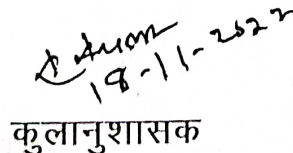 18-11-2022
कुलानुशासक